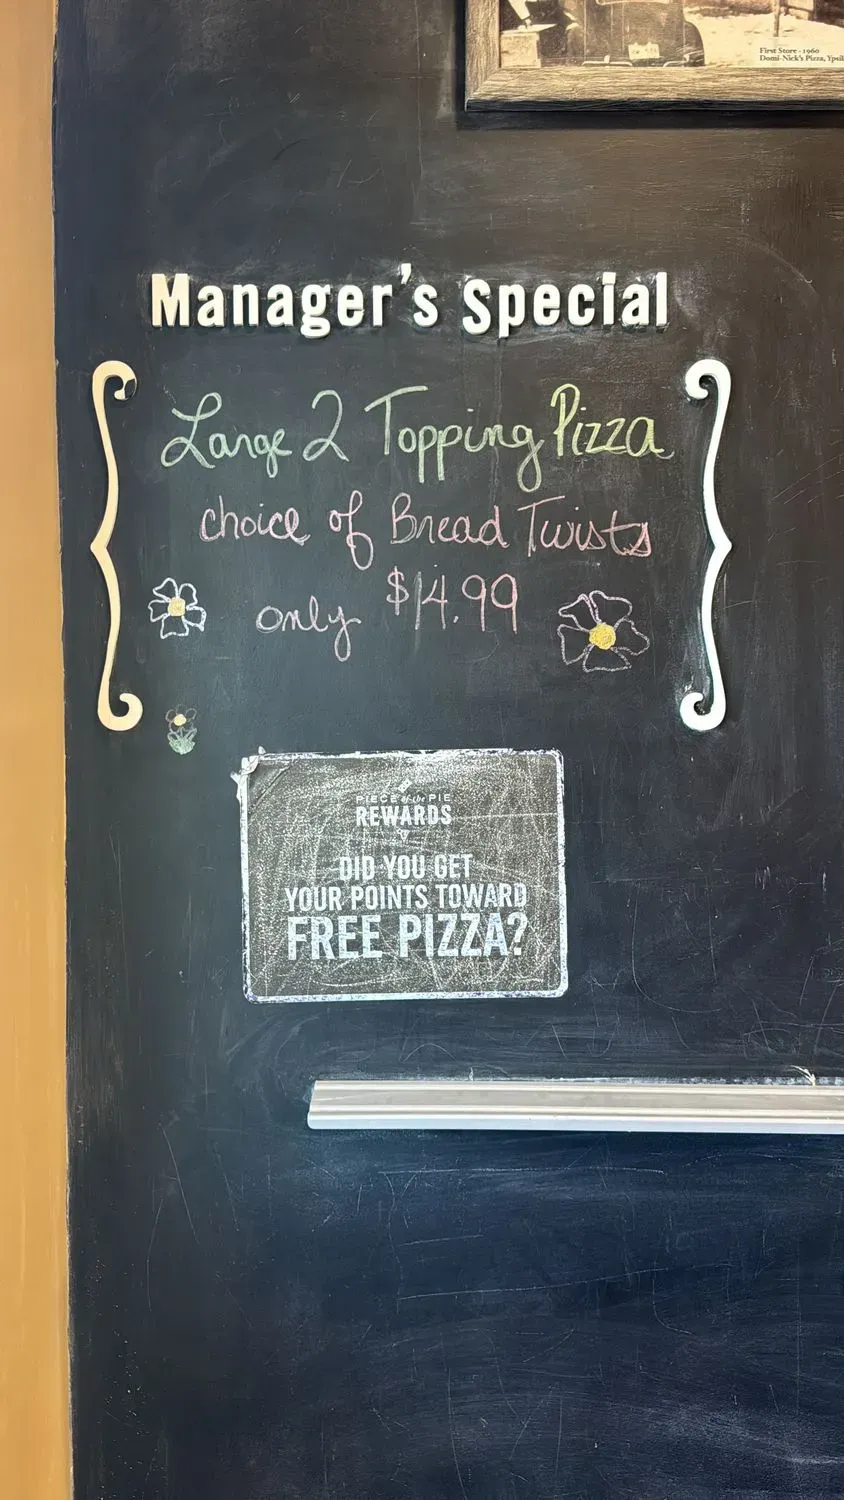 First Store - 1960
Domi-Nick's Pizza,
Manager's Special
Large 2 Topping Pizza
choice of Bread Twists
only $14.99
PIECE of the PIE
REWARDS
DID YOU GET
YOUR POINTS TOWARD
FREE PIZZA?